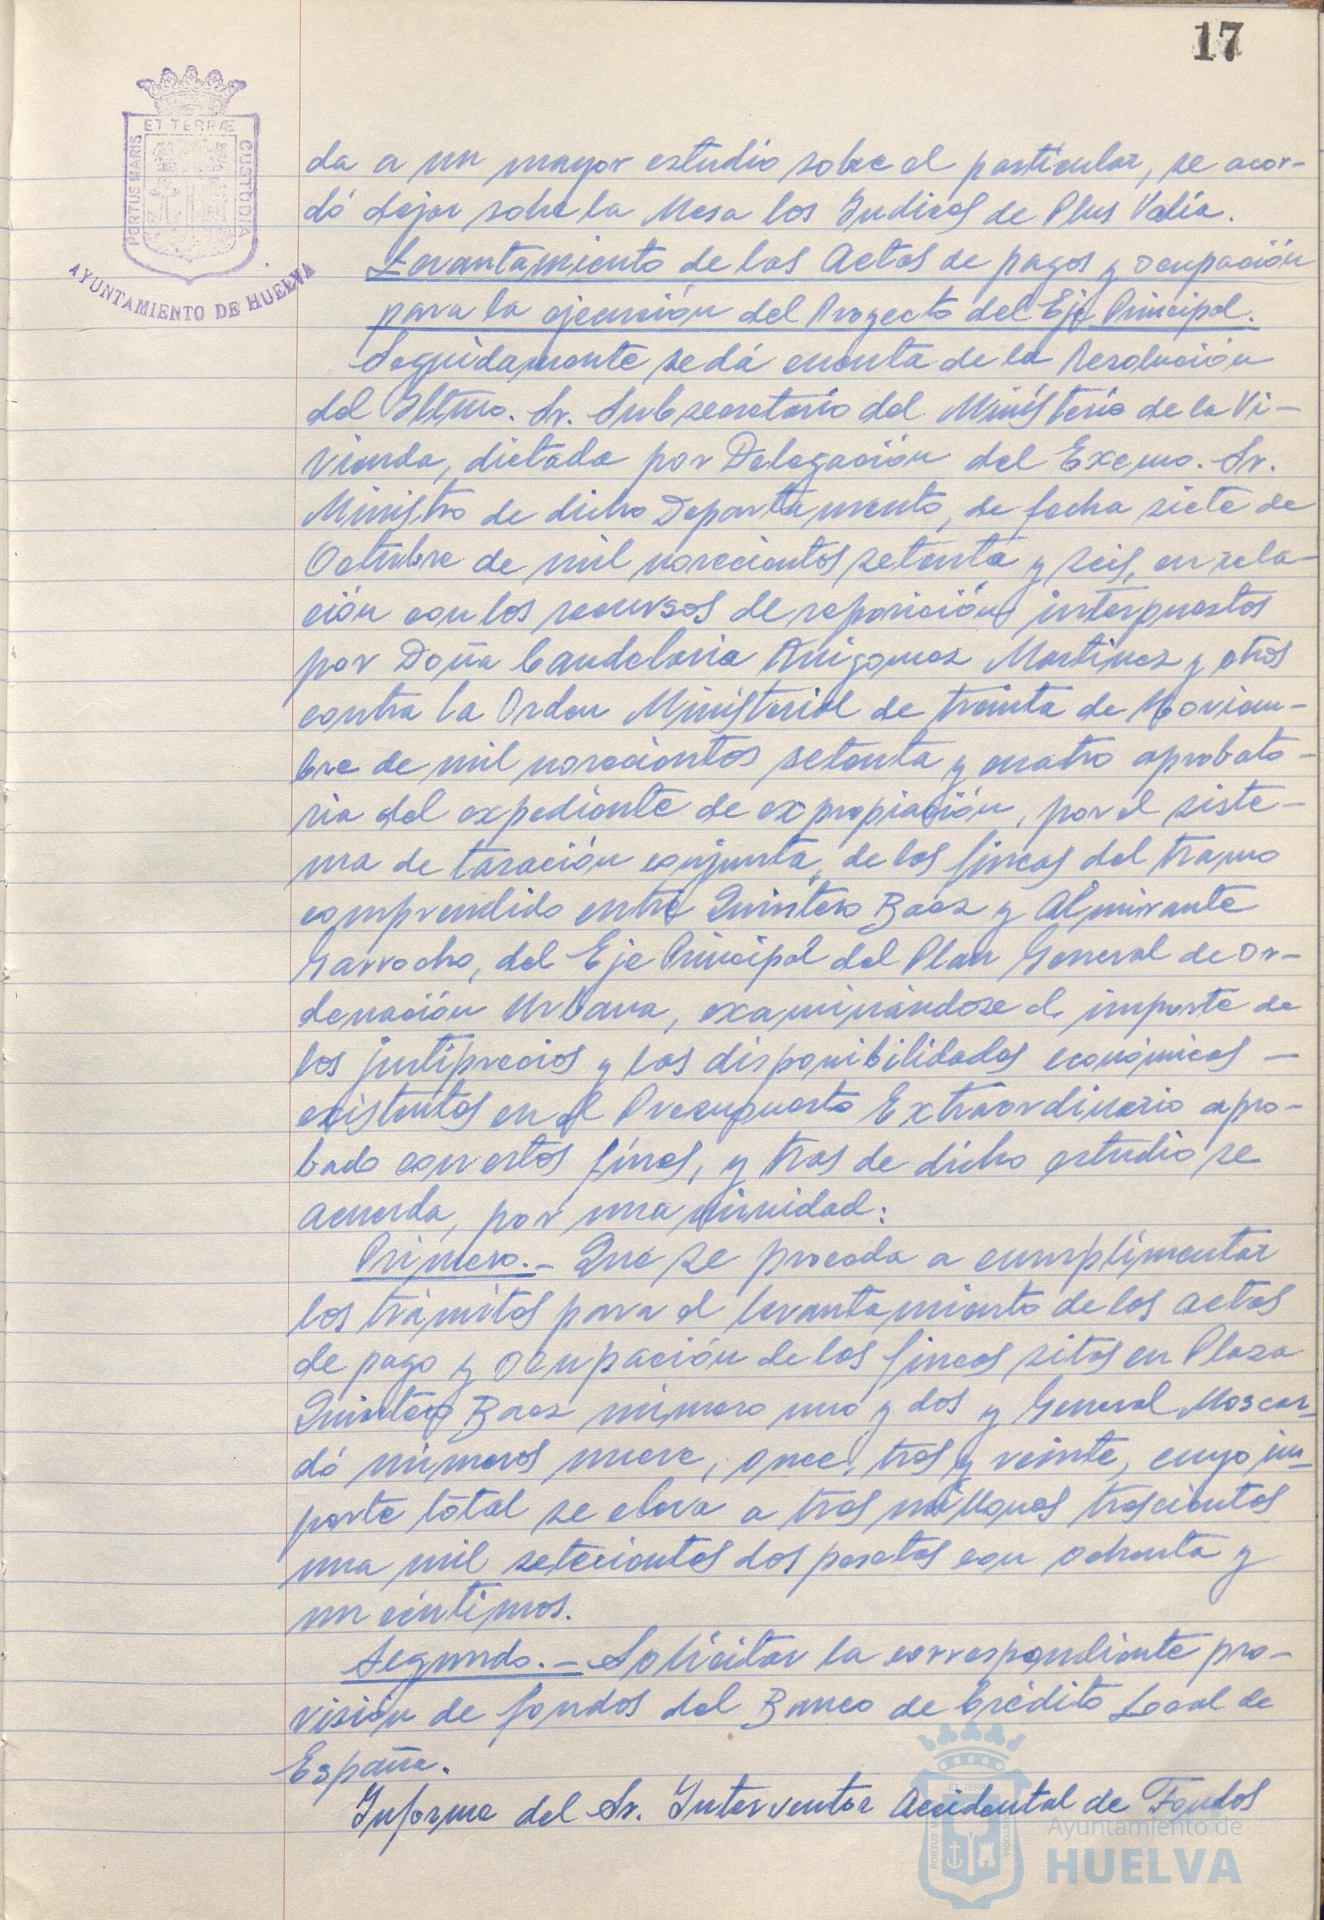 17
ET TERRÆ
PORTUS MARIS
CUSTODIA
AYUNTAMIENTO DE HUELVA
da a un mayor estudio sobre el particular, se acor-
dó dejar sobre la Mesa los Indices de Plus Valía.
Levantamiento de las Actas de pagos y ocupación
para la ejecución del Proyecto del Eje Principal.
Seguidamente se dá cuenta de la Resolución
del Iltmo. Sr. Subsecretario del Ministerio de la Vi-
vienda, dictada por Delegación del Excmo. Sr.
Ministro de dicho Departamento, de fecha siete de
Octubre de mil novecientos setenta y seis, en rela-
ción con los recursos de reposición interpuestos
por Doña Candelaria Martinez y otros
contra la Orden Ministerial de treinta de Noviem-
bre de mil novecientos setenta y cuatro aprobato-
ria del expediente de expropiación, por el siste-
ma de tasación conjunta, de las fincas del tramo
comprendido entre Quintero Baez y Almirante
Garrocho, del Eje Principal del Plan General de Or-
denación Urbana, examinándose el importe de
los justiprecios y las disponibilidades económicas -
existentes en el Presupuesto Extraordinario apro-
bado con estos fines, y tras de dicho estudio se
acuerda, por unanimidad:
Primero.- Que se proceda a cumplimentar
los trámites para el levantamiento de las actas
de pago y ocupación de las fincas sitas en Plaza
Quintero Baez número uno y dos y General Moscar-
dó números nueve, once, tres y veinte, cuyo im-
porte total se eleva a tres millones trescientos
una mil setecientas dos pesetas con ochenta y
un céntimos.
Segundo.- Solicitar la correspondiente pro-
visión de fondos del Banco de Crédito Local de
España.
Informe del Sr. Interventor Accidental de Fondos
Ayuntamiento de
HUELVA